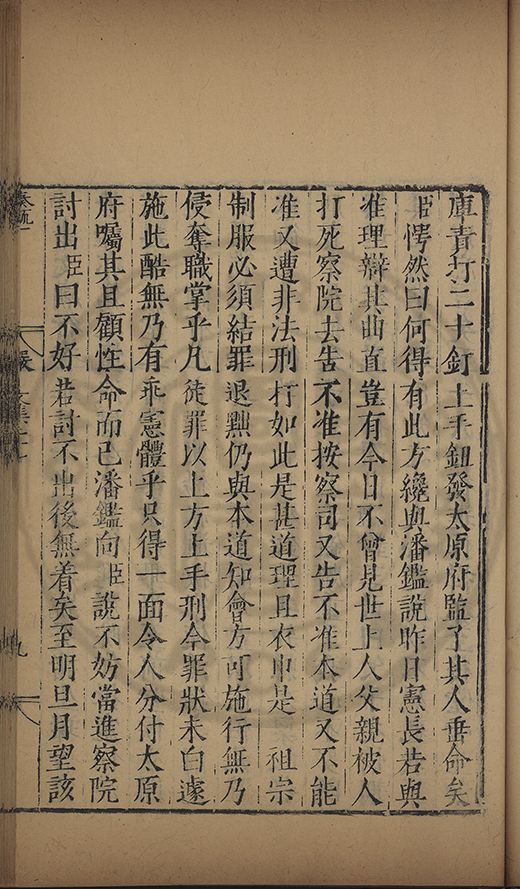 庫責打二十釘上手鈕發太原府監了其人垂命矣
臣愕然曰何得有此方纔與潘鑑說昨日憲長若與
准理辯其曲直豈有今日不曾見世上人父親被人
打死察院去告不准按察司又告不准本道又不能
准又遭非法刑打如此是甚道理且衣巾是 祖宗
制服必須結罪退黜仍與本道知會方可施行無乃
侵奪職掌乎凡徒罪以上方上手刑今罪狀未白遽
施此酷無乃有乖憲體乎只得一面令人分付太原
府囑其且顧性命而已潘鑑向臣說不妨當進察院
討出臣曰不好若討不出後無着矣至明旦月望該